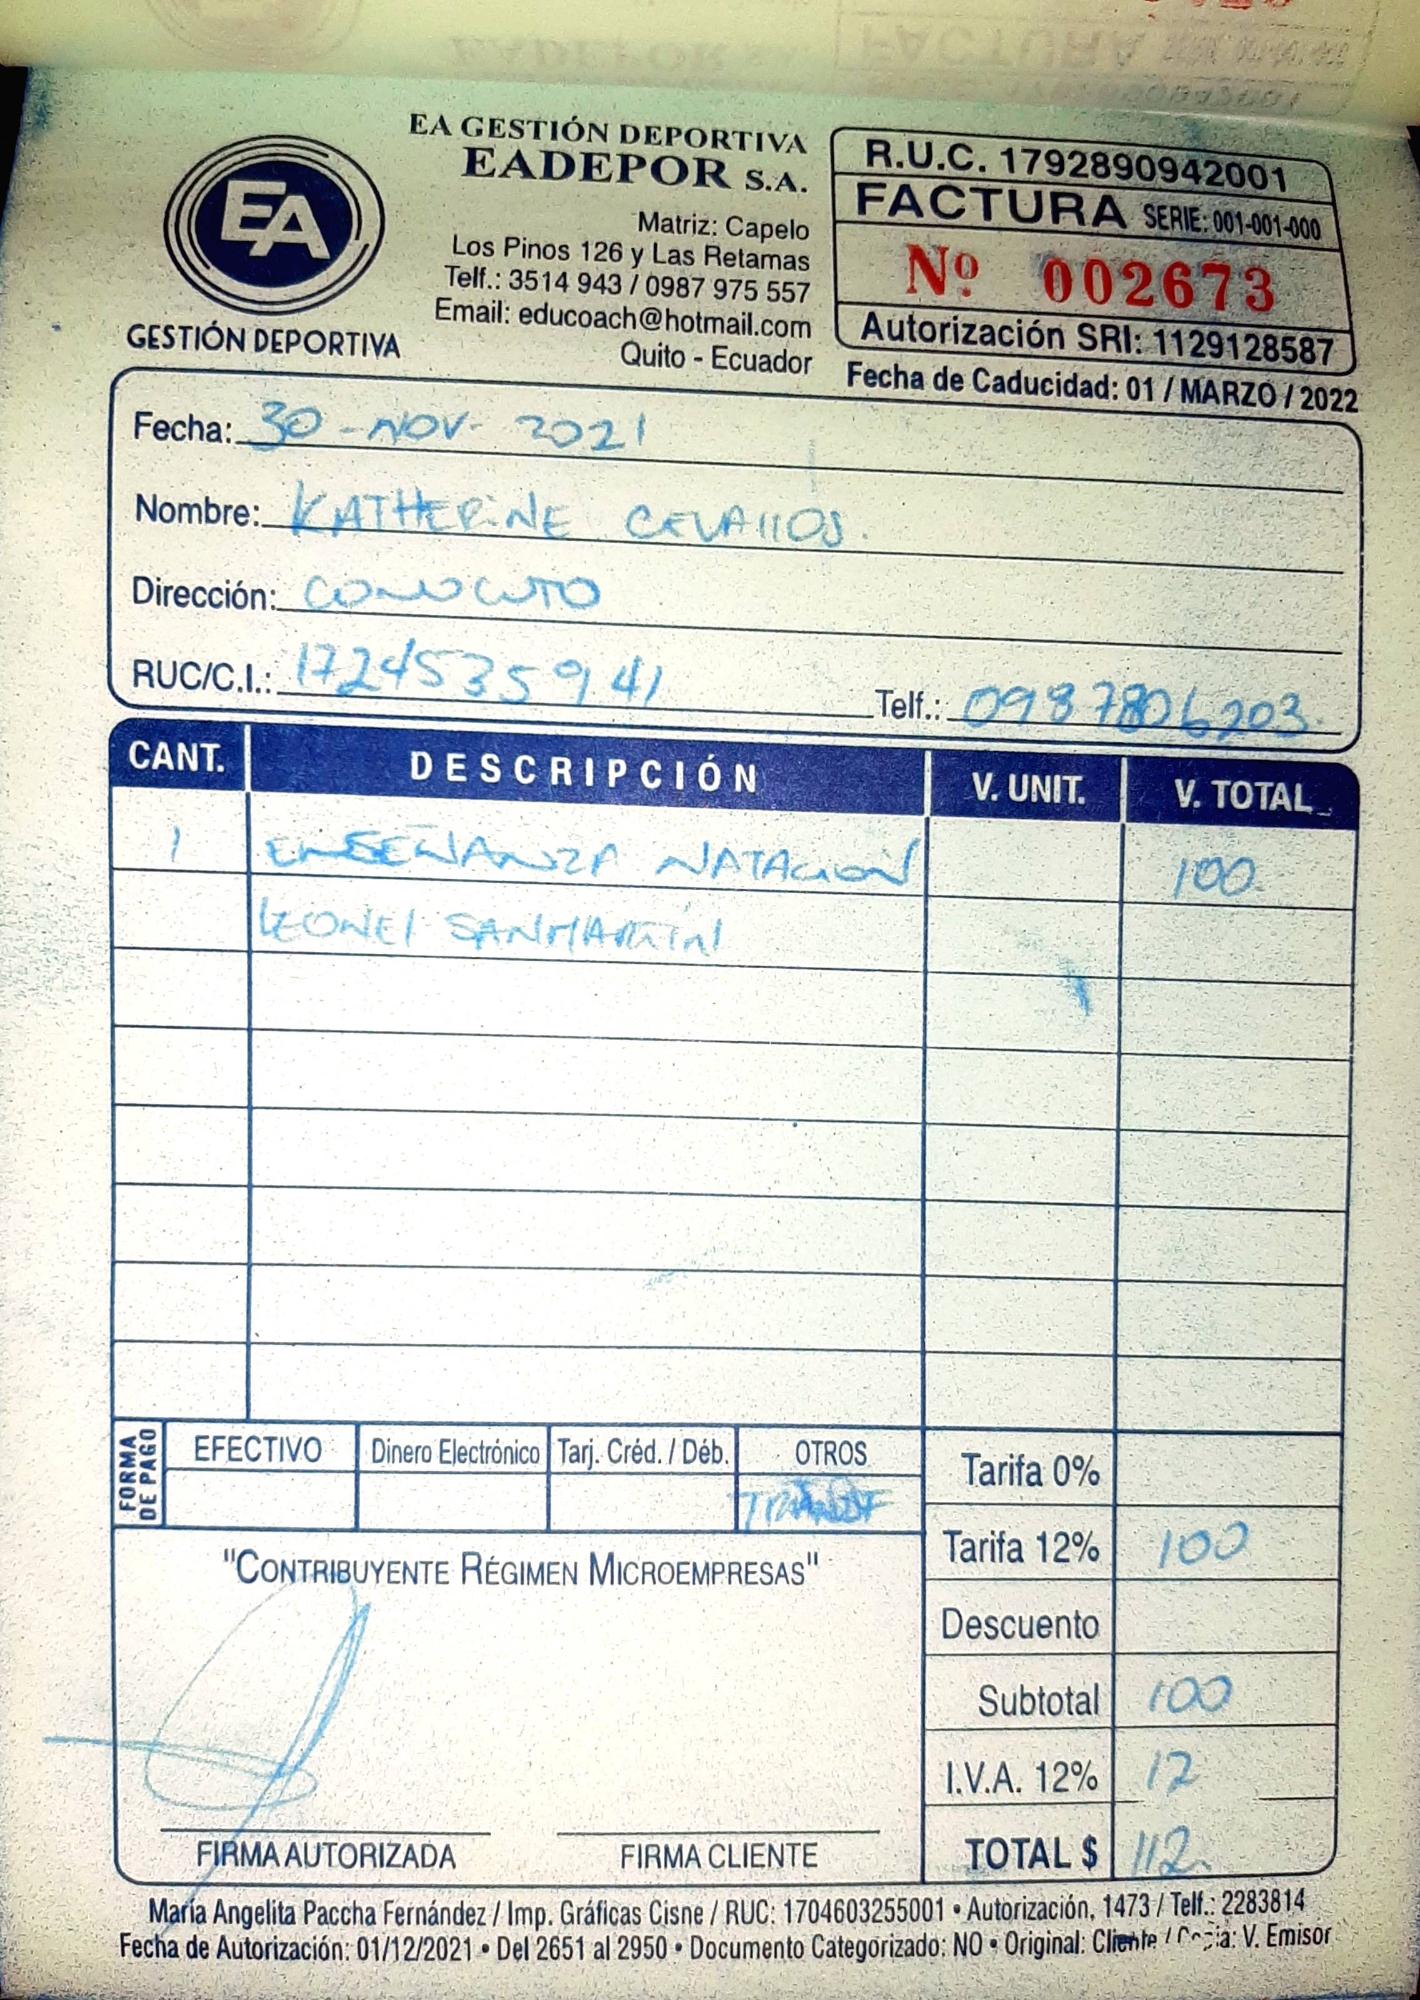 EA GESTIÓN DEPORTIVA
EADEPOR S.A.
Matriz: Capelo
Los Pinos 126 y Las Retamas
Telf.: 3514 943 / 0987 975 557
Email: educoach@hotmail.com
Quito - Ecuador
EA
GESTIÓN DEPORTIVA
R.U.C. 1792890942001
FACTURA SERIE: 001-001-000
Nº 002673
Autorización SRI: 1129128587
Fecha de Caducidad: 01 / MARZO / 2022
Fecha: 30 - NOV - 2021
Nombre: KATHERINE CEVALLOS.
Dirección: CONOCOTO
RUC/C.I.: 1724535941 Telf.: 0987806203.
CANT. DESCRIPCIÓN V. UNIT. V. TOTAL
1 ENSEÑANZA NATACION 100.
LEONEL SANMARTIN
FORMA DE PAGO
EFECTIVO Dinero Electrónico Tarj. Créd. / Déb. OTROS
TRANSF
Tarifa 0%
Tarifa 12% 100
Descuento
Subtotal 100
I.V.A. 12% 12
TOTAL $ 112.
"CONTRIBUYENTE RÉGIMEN MICROEMPRESAS"
FIRMA AUTORIZADA FIRMA CLIENTE
María Angelita Paccha Fernández / Imp. Gráficas Cisne / RUC: 1704603255001 • Autorización. 1473 / Telf.: 2283814
Fecha de Autorización: 01/12/2021 • Del 2651 al 2950 • Documento Categorizado: NO • Original: Cliente / Copia: V. Emisor